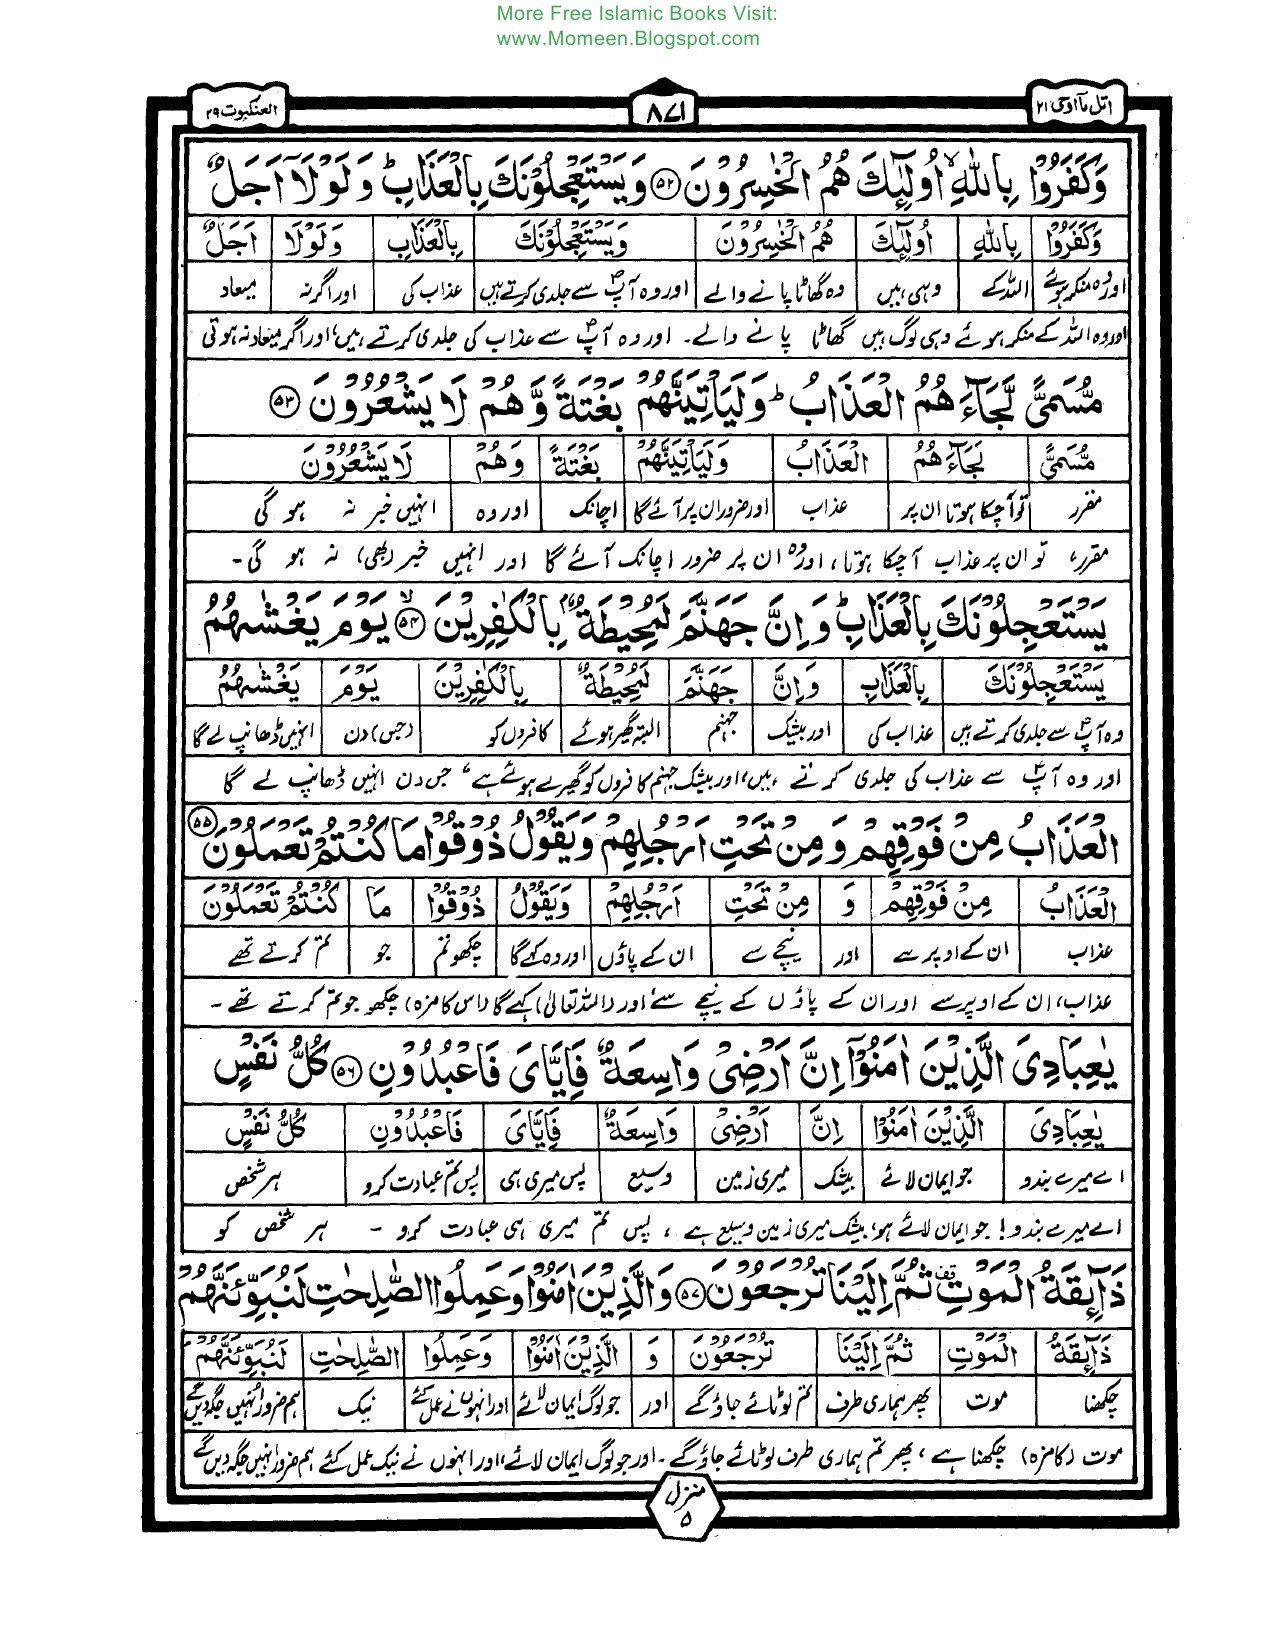 More Free Islamic Books Visit:
www.Momeen.Blogspot.com
اتل ما اوحی ۲۱ ۸۷۱ العنکبوت ۲۹
وَكَفَرُوْا بِاللّٰهِ ۙ اُولٰٓئِكَ هُمُ الْخٰسِرُوْنَ ۵۲ وَيَسْتَعْجِلُوْنَكَ بِالْعَذَابِ ؕ وَلَوْلَاۤ اَجَلٌ
وَكَفَرُوْا بِاللّٰهِ اُولٰٓئِكَ هُمُ الْخٰسِرُوْنَ وَيَسْتَعْجِلُوْنَكَ بِالْعَذَابِ وَلَوْلَا اَجَلٌ
اور وہ منکر ہوئے اللہ کے وہی ہیں وہ گھاٹا پانے والے اور وہ آپؐ سے جلدی کرتے ہیں عذاب کی اور اگر نہ میعاد
اور وہ اللہ کے منکر ہوئے وہی لوگ ہیں گھاٹا پانے والے۔ اور وہ آپؐ سے عذاب کی جلدی کرتے ہیں، اور اگر میعاد نہ ہوتی
مُّسَمًّى لَّجَآءَهُمُ الْعَذَابُ ؕ وَلَيَاْتِيَنَّهُمْ بَغْتَةً وَّهُمْ لَا يَشْعُرُوْنَ ۵۳
مُّسَمًّى لَجَآءَهُمُ الْعَذَابُ وَلَيَاْتِيَنَّهُمْ بَغْتَةً وَهُمْ لَا يَشْعُرُوْنَ
مقرر تو آچکا ہوتا ان پر عذاب اور ضرور ان پر آئے گا اچانک اور وہ انہیں خبر نہ ہو گی
مقرر، تو ان پر عذاب آچکا ہوتا، اور وہ ان پر ضرور اچانک آئے گا اور انہیں خبر (بھی) نہ ہو گی۔
يَسْتَعْجِلُوْنَكَ بِالْعَذَابِ ؕ وَاِنَّ جَهَنَّمَ لَمُحِيْطَةٌۢ بِالْكٰفِرِيْنَ ۙ ۵۴ يَوْمَ يَغْشٰىهُمُ
يَسْتَعْجِلُوْنَكَ بِالْعَذَابِ وَاِنَّ جَهَنَّمَ لَمُحِيْطَةٌ بِالْكٰفِرِيْنَ يَوْمَ يَغْشٰىهُمُ
وہ آپؐ سے جلدی کرتے ہیں عذاب کی اور بیشک جہنم البتہ گھیرے ہوئے کافروں کو (جس) دن انہیں ڈھانپ لے گا
اور وہ آپؐ سے عذاب کی جلدی کرتے ہیں، اور بیشک جہنم کافروں کو گھیرے ہوئے ہے، جس دن انہیں ڈھانپ لے گا
الْعَذَابُ مِنْ فَوْقِهِمْ وَمِنْ تَحْتِ اَرْجُلِهِمْ وَيَقُوْلُ ذُوْقُوْا مَا كُنْتُمْ تَعْمَلُوْنَ ۵۵
الْعَذَابُ مِنْ فَوْقِهِمْ وَ مِنْ تَحْتِ اَرْجُلِهِمْ وَيَقُوْلُ ذُوْقُوْا مَا كُنْتُمْ تَعْمَلُوْنَ
عذاب ان کے اوپر سے اور نیچے سے ان کے پاؤں اور وہ کہے گا چکھو تم جو تم کرتے تھے
عذاب، ان کے اوپر سے اور ان کے پاؤں کے نیچے سے، اور (اللہ تعالیٰ) کہے گا (اس کا مزہ) چکھو جو تم کرتے تھے۔
يٰعِبَادِىَ الَّذِيْنَ اٰمَنُوْۤا اِنَّ اَرْضِىْ وَاسِعَةٌ فَاِيَّاىَ فَاعْبُدُوْنِ ۵۶ كُلُّ نَفْسٍ
يٰعِبَادِىَ الَّذِيْنَ اٰمَنُوْٓا اِنَّ اَرْضِىْ وَاسِعَةٌ فَاِيَّاىَ فَاعْبُدُوْنِ كُلُّ نَفْسٍ
اے میرے بندو جو ایمان لائے بیشک میری زمین وسیع پس میری ہی پس تم عبادت کرو ہر شخص
اے میرے بندو! جو ایمان لائے ہو، بیشک میری زمین وسیع ہے، پس تم میری ہی عبادت کرو۔ ہر شخص کو
ذَآئِقَةُ الْمَوْتِ ۟ ثُمَّ اِلَيْنَا تُرْجَعُوْنَ ۵۷ وَالَّذِيْنَ اٰمَنُوْا وَعَمِلُوا الصّٰلِحٰتِ لَنُبَوِّئَنَّهُمْ
ذَآئِقَةُ الْمَوْتِ ثُمَّ اِلَيْنَا تُرْجَعُوْنَ وَ الَّذِيْنَ اٰمَنُوْا وَعَمِلُوا الصّٰلِحٰتِ لَنُبَوِّئَنَّهُمْ
چکھنا موت پھر ہماری طرف تم لوٹائے جاؤ گے اور جو لوگ ایمان لائے اور انہوں نے عمل کئے نیک ہم ضرور انہیں جگہ دیں گے
موت (کا مزہ) چکھنا ہے، پھر تم ہماری طرف لوٹائے جاؤ گے۔ اور جو لوگ ایمان لائے، اور انہوں نے نیک عمل کئے ہم ضرور انہیں جگہ دیں گے
منزل ۵